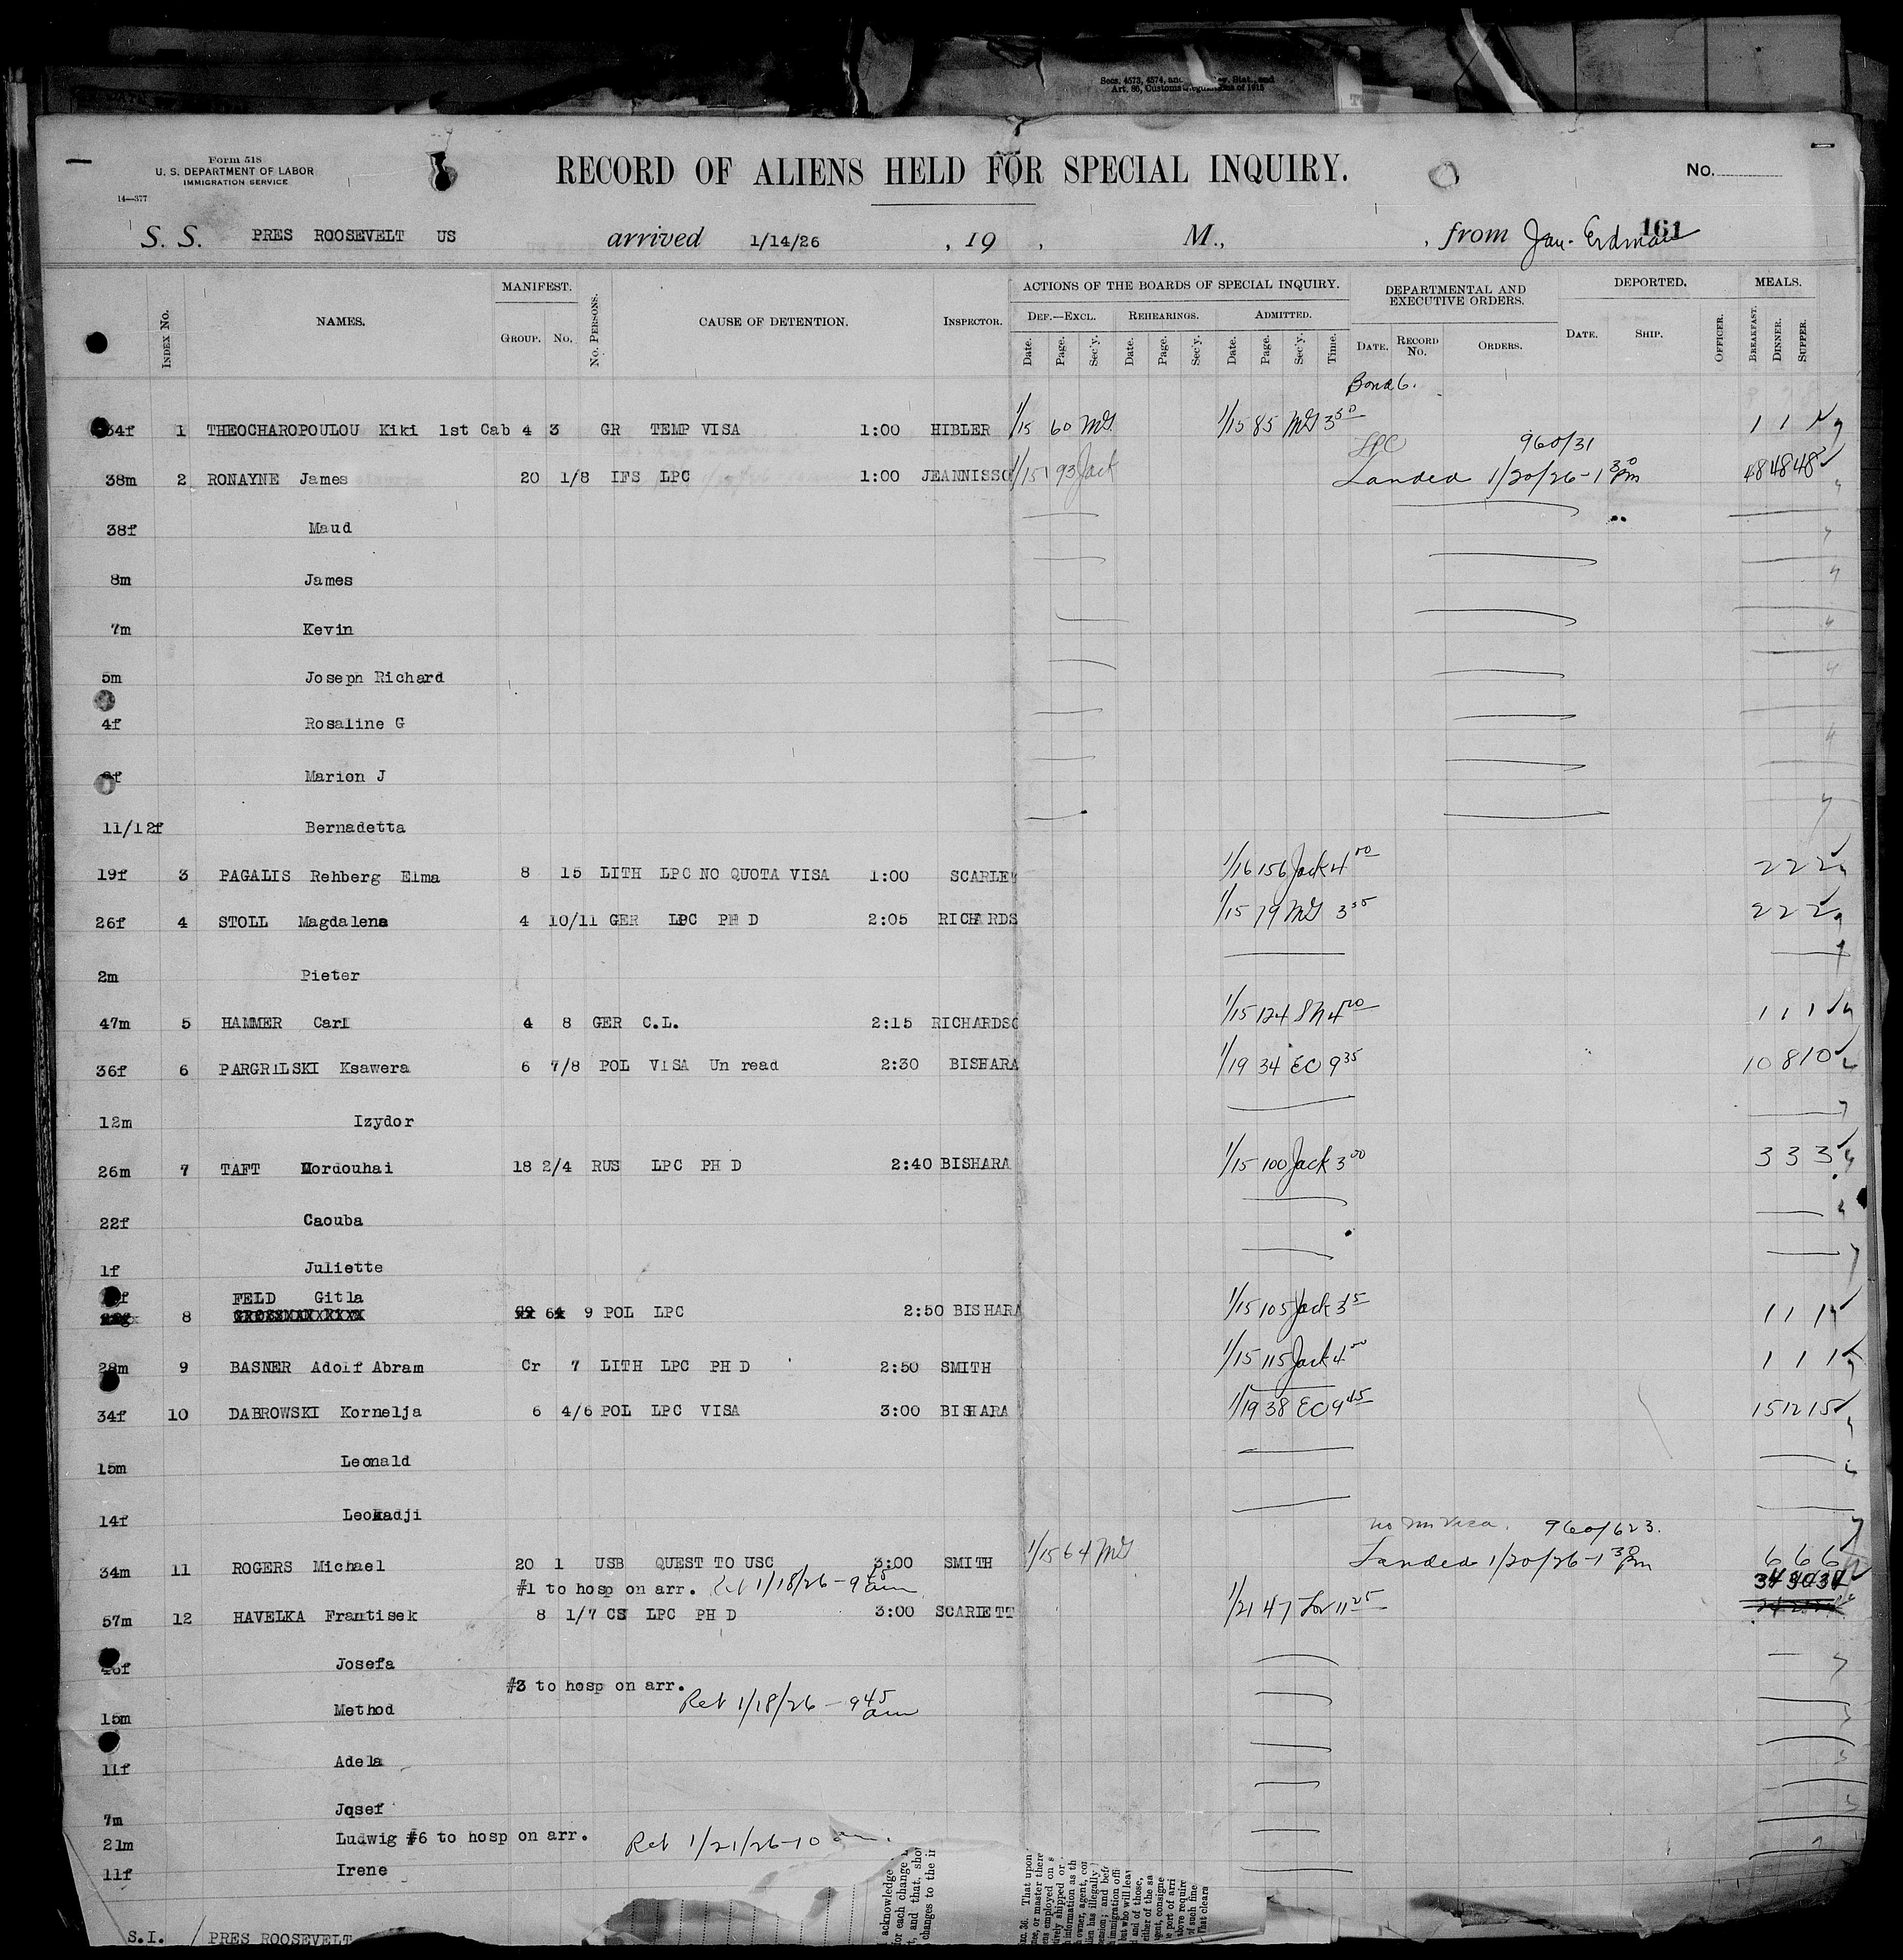 Secs. 4573, 4574, and Rev. Stat., and
Art. 86, Customs Regulations of 1915
Form 518
U. S. DEPARTMENT OF LABOR
IMMIGRATION SERVICE
14—377
RECORD OF ALIENS HELD FOR SPECIAL INQUIRY.
No.
161
S. S. PRES ROOSEVELT US arrived 1/14/26 , 19 , M., , from Jan. Erdman
INDEX No. NAMES. MANIFEST. No. PERSONS. CAUSE OF DETENTION. INSPECTOR. ACTIONS OF THE BOARDS OF SPECIAL INQUIRY. DEPARTMENTAL AND EXECUTIVE ORDERS. DEPORTED. MEALS.
GROUP. No. DEF.—EXCL. REHEARINGS. ADMITTED.
Date. Page. Sec'y. Date. Page. Sec'y. Date. Page. Sec'y. Time. DATE. RECORD No. ORDERS. DATE. SHIP. OFFICER. BREAKFAST. DINNER. SUPPER.
Bond 6.
34f 1 THEOCHAROPOULOU Kiki 1st Cab 4 3 GR TEMP VISA 1:00 HIBLER 1/15 60 MG 1/15 85 MG 3 50 1 1 1
LPC 960/31
38m 2 RONAYNE James 20 1/8 IFS LPC 1:00 JEANNISSO 1/15 193 Jack Landed 1/20/26 - 1 30 pm 48 48 48
38f Maud
8m James
7m Kevin
5m Joseph Richard
4f Rosaline G
f Marion J
11/12f Bernadetta
19f 3 PAGALIS Rehberg Elma 8 15 LITH LPC NO QUOTA VISA 1:00 SCARLE 1/16 156 Jack 4 00 2 2 2
26f 4 STOLL Magdalena 4 10/11 GER LPC PH D 2:05 RICHARDS 1/15 79 MG 3 55 2 2 2
2m Pieter
47m 5 HAMMER Carl 4 8 GER C.L. 2:15 RICHARDSO 1/15 124 SN 4 20 1 1 1
36f 6 PARGRILSKI Ksawera 6 7/8 POL VISA Un read 2:30 BISHARA 1/19 34 EO 9 35 10 8 10
12m Izydor
26m 7 TAFT Mordouhai 18 2/4 RUS LPC PH D 2:40 BISHARA 1/15 100 Jack 3 00 3 3 3
22f Caouba
1f Juliette
f FELD Gitla
8 GROSSMAN 6 9 POL LPC 2:50 BISHARA 1/15 105 Jack 3 15 1 1 1
28m 9 BASNER Adolf Abram Cr 7 LITH LPC PH D 2:50 SMITH 1/15 115 Jack 4 00 1 1 1
34f 10 DABROWSKI Kornelja 6 4/6 POL LPC VISA 3:00 BISHARA 1/19 38 EO 9 45 15 12 15
15m Leonald
14f Leokadji
960/623.
34m 11 ROGERS Michael 20 1 USB QUEST TO USC 3:00 SMITH 1/15 64 MG Landed 1/20/26 - 1 30 pm 6 6 6
#1 to hosp on arr. Ret 1/18/26 - 9 45 am 34 30 34
57m 12 HAVELKA Frantisek 8 1/7 CS LPC PH D 3:00 SCARLETT 1/21 47 11 25
46f Josefa
#3 to hosp on arr. Ret 1/18/26 - 9 45 am
15m Method
11f Adela
7m Josef
21m Ludwig #6 to hosp on arr. Ret 1/21/26 - 10 am.
11f Irene
S.I. / PRES ROOSEVELT